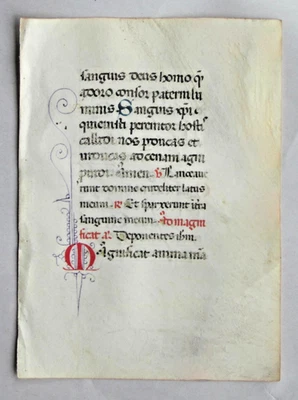 sanguis deus homo q̃
adoro consor patern lu
minis Sanguis xp̃i
qui emisti peremtor hostis
callidi nos prouocas et
inuitas ad cenam agni
Amen ℣ Lancea
runt domine crudeliter latus
meum ℟ Et sparxerunt in t̃ra
sanguine meum Ad magni
ficat añ Deponentes ihm
Magnificat anima mea